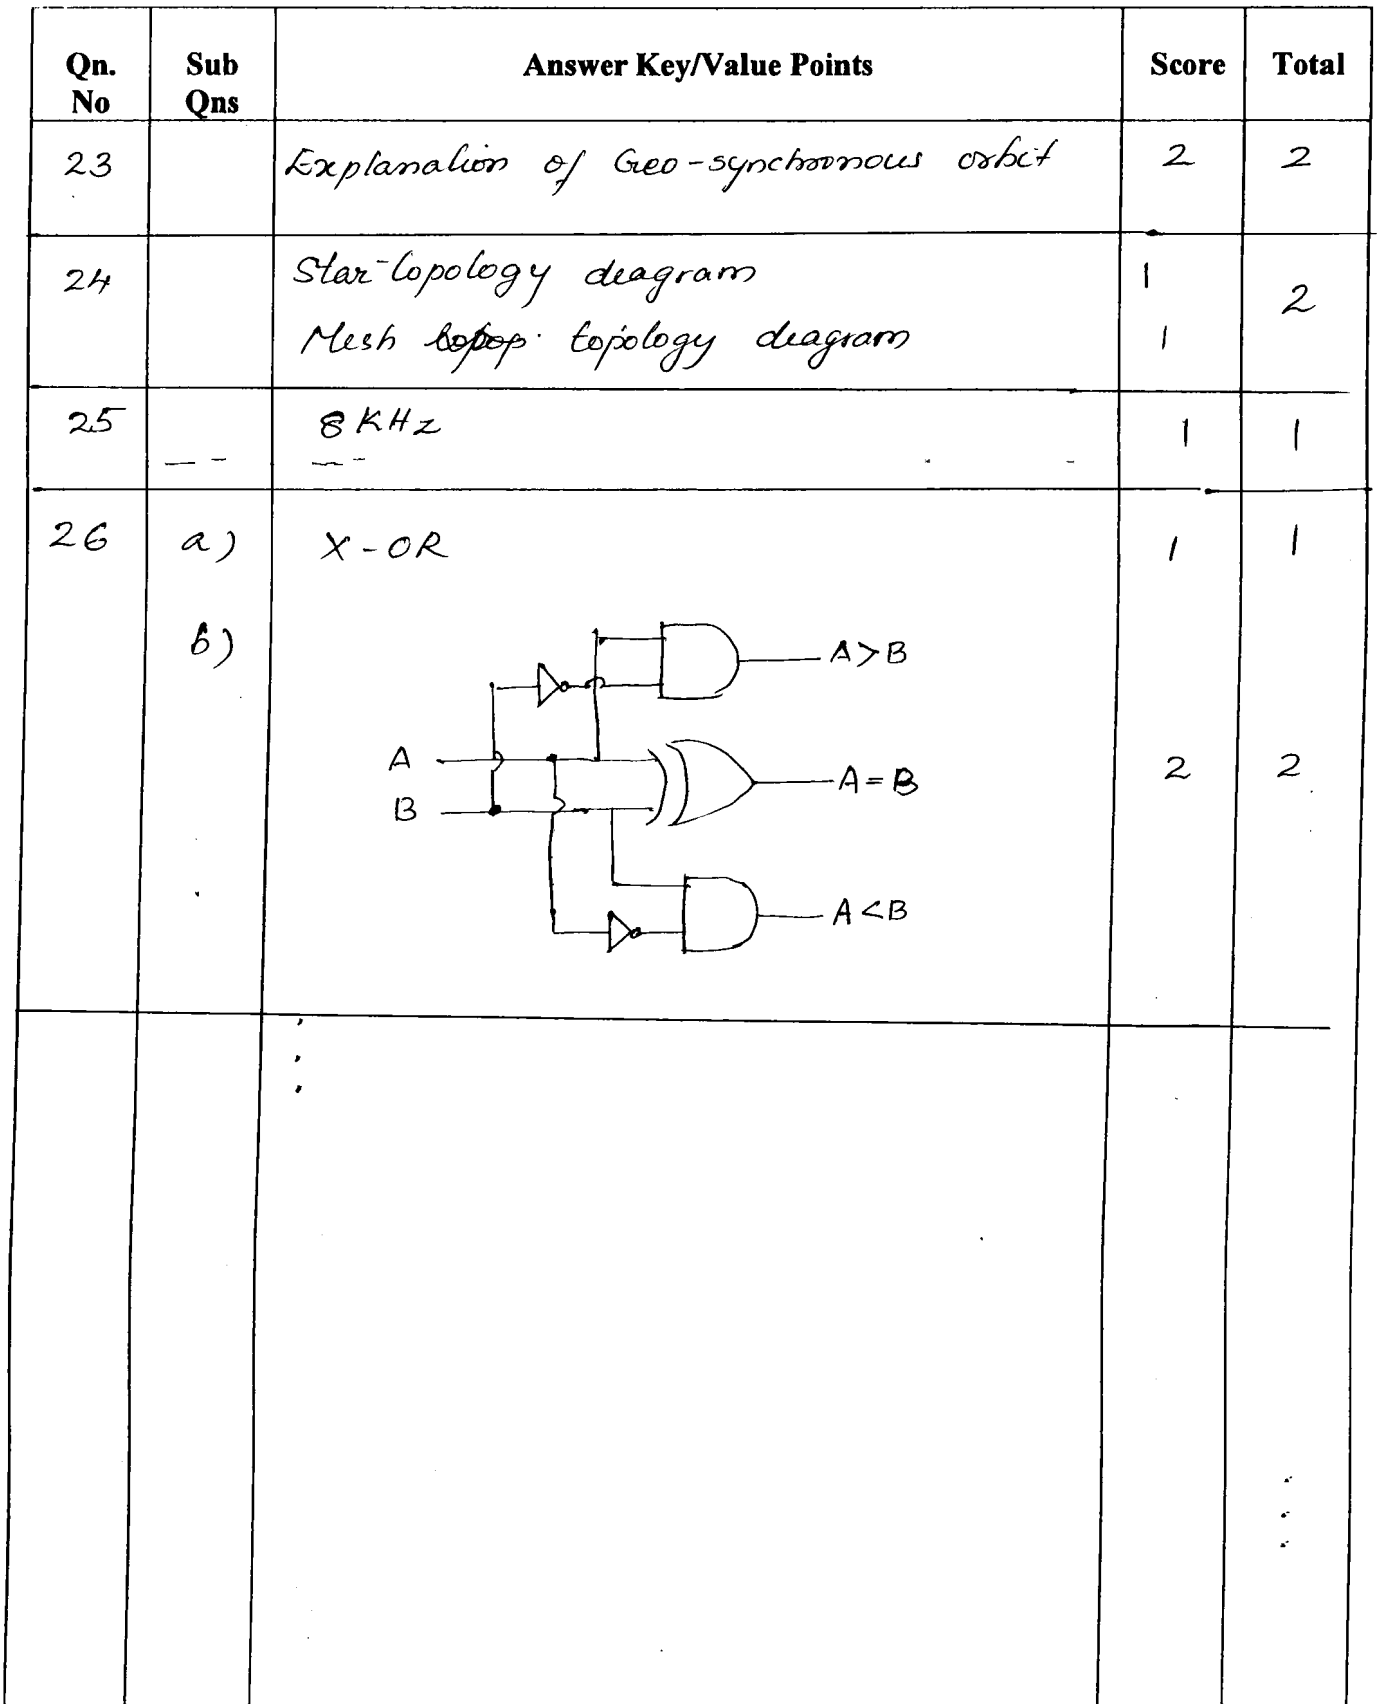 Qn. No Sub Qns Answer Key/Value Points Score Total
23 Explanation of Geo-synchronous orbit 2 2
24 Star topology diagram 1 2
Mesh topology diagram 1
25 8 KHz 1 1
26 a) X-OR 1 1
b)
A>B
A
A=B 2 2
B
A<B